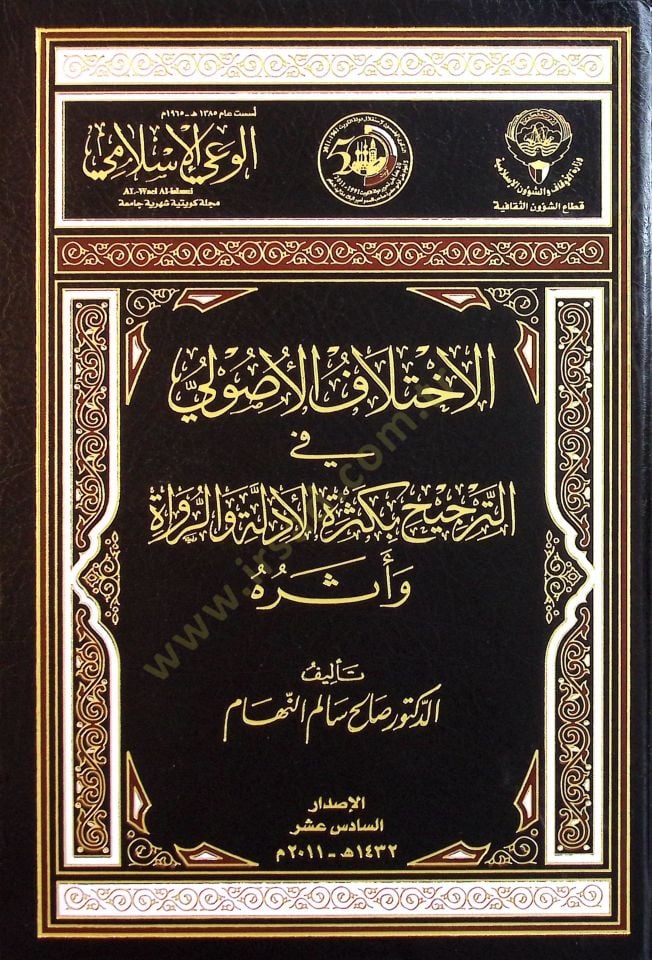 أسست عام ١٣٨٥ هـ - ١٩٦٥م
الوعي الإسلامي
AL-Waei AL-Islami
مجلة كويتية شهرية جامعة
50
وزارة الأوقاف والشؤون الإسلامية
قطاع الشؤون الثقافية
الِاخْتِلَافُ الأُصُولِيُّ
فِي
التَّرْجِيحِ بِكَثْرَةِ الأَدِلَّةِ وَالرُّوَاةِ
وَأَثَرُهُ
تأليفُ
الدكتور صالح سالم النّهام
الإصدار
السادس عشر
١٤٣٢هـ - ٢٠١١م